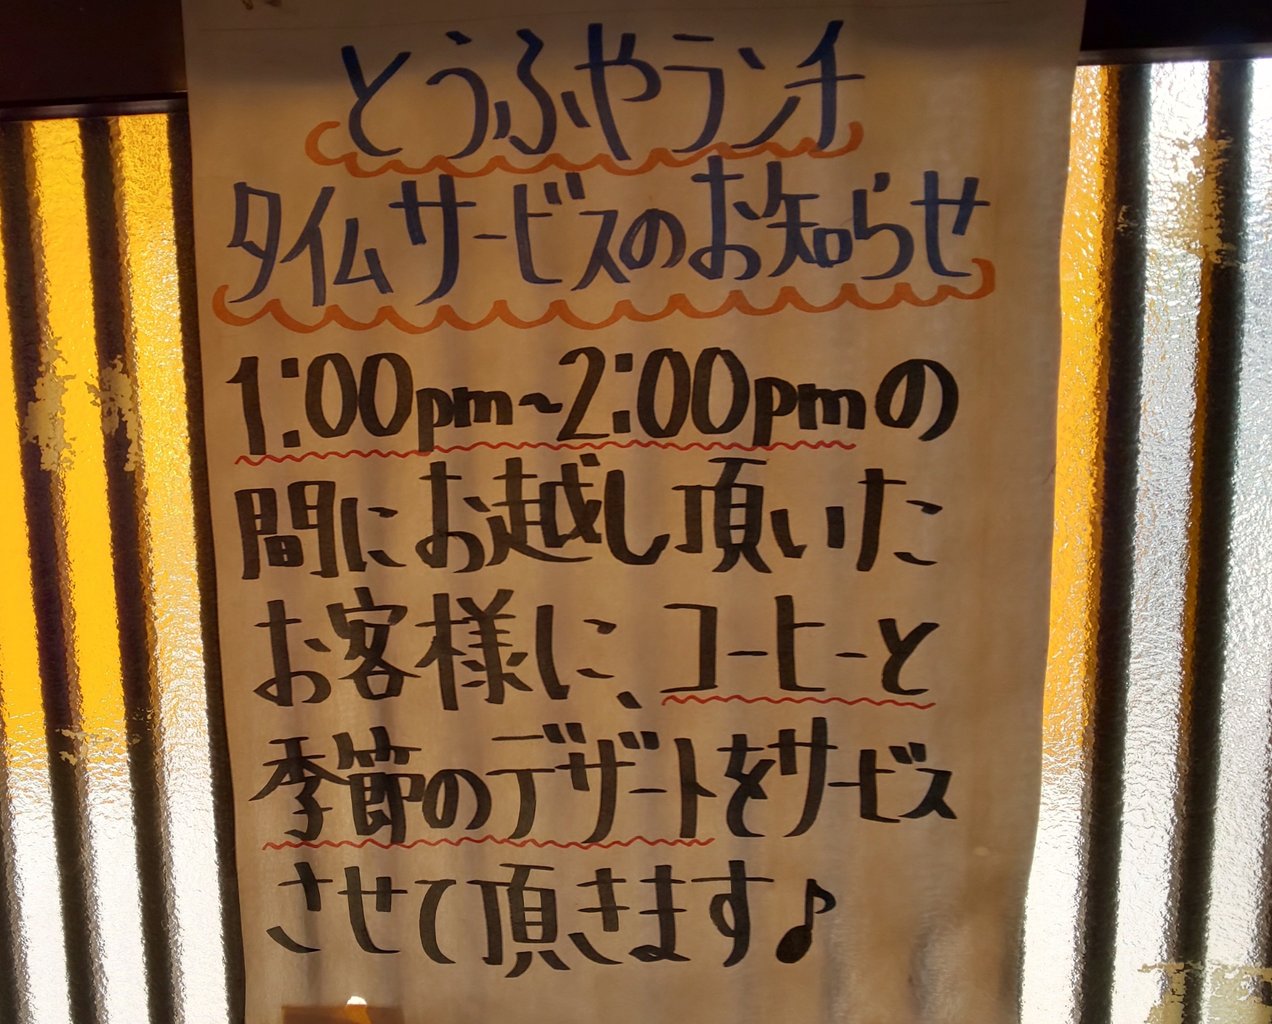 とうふやランチ
タイムサービスのお知らせ
1:00pm~2:00pmの
間にお越し頂いた
お客様に、コーヒーと
季節のデザートをサービス
させて頂きます♪